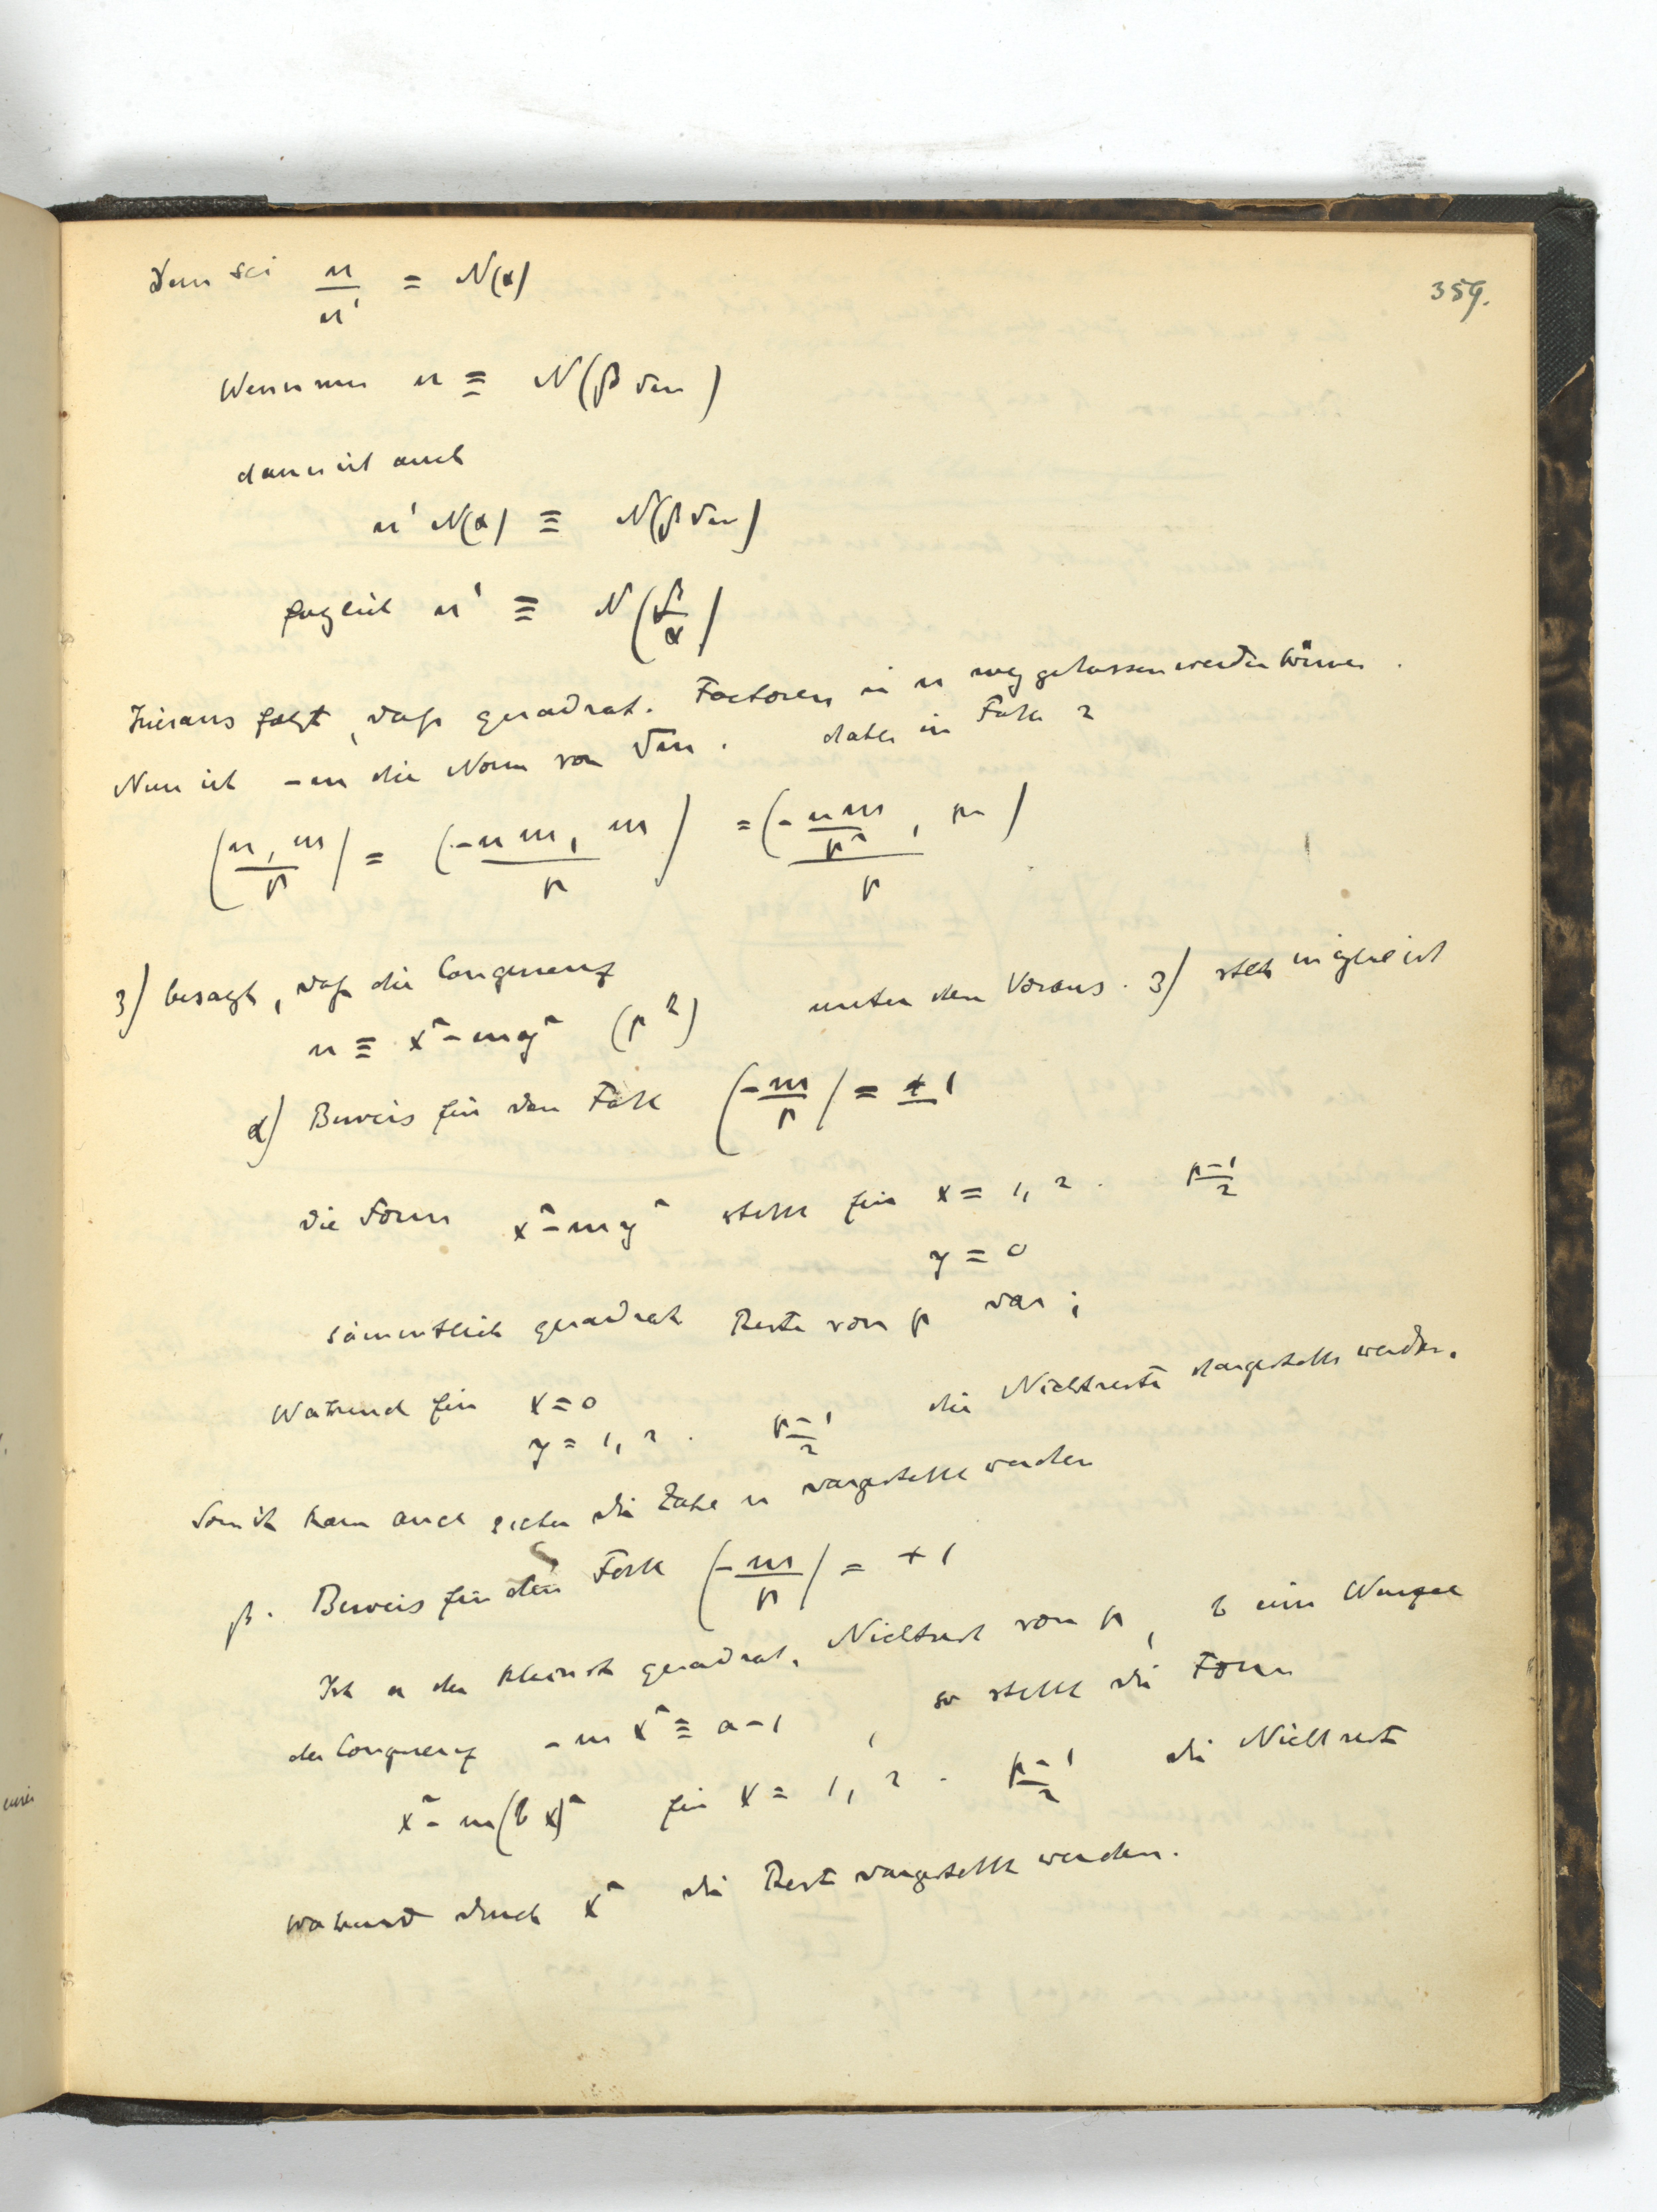 359.
Denn sei n/n' = N(α)
Wenn nun n ≡ N(β √m)
dann ist auch
n' N(α) ≡ N(β √m)
folglich n' ≡ N(β/α)
Hieraus folgt, daß quadrat. Factoren in n weggelassen werden können.
Nun ist -m die Norm von √m. daher in Falle 2
(n, m / p) = (-n m, m / p) = (-n m / p², m / p)
3) besagt, daß die Congruenz unter den Voraus. 3) stets möglich ist
n ≡ x² - my² (p^k)
α) Beweis für den Fall (-m/p) = ± 1
Die Form x² - my² stellt für x = 1, 2 . p-1/2
y = 0
sämmtlich quadrat Reste von p dar;
Während für x = 0 die Nichtreste dargestellt werden.
y = 1, 2 . p-1/2
Somit kann auch sicher die Zahl n dargestellt werden
β. Beweis für den Fall (-m/p) = + 1
Ist a der kleinste quadrat. Nichtrest von p, b eine Wurzel
der Congruenz -m x² ≡ a-1, so stellt die Form
x² - m(b x)² für x = 1, 2 . p-1/2 die Nichtreste
während durch x² die Reste dargestellt werden.